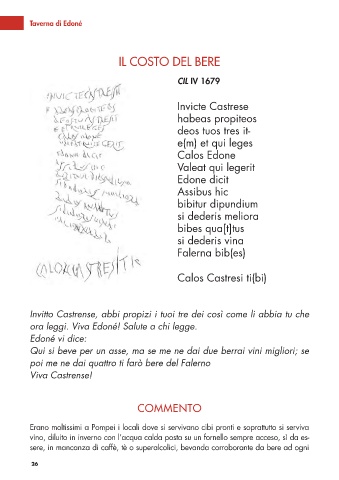 Taverna di Edoné
IL COSTO DEL BERE
CIL IV 1679
Invicte Castrese
habeas propiteos
deos tuos tres it-
e(m) et qui leges
Calos Edone
Valeat qui legerit
Edone dicit
Assibus hic
bibitur dipundium
si dederis meliora
bibes qua[t]tus
si dederis vina
Falerna bib(es)
Calos Castresi ti(bi)
Invitto Castrense, abbi propizi i tuoi tre dei così come li abbia tu che
ora leggi. Viva Edoné! Salute a chi legge.
Edoné vi dice:
Qui si beve per un asse, ma se me ne dai due berrai vini migliori; se
poi me ne dai quattro ti farò bere del Falerno
Viva Castrense!
COMMENTO
Erano moltissimi a Pompei i locali dove si servivano cibi pronti e soprattutto si serviva
vino, diluito in inverno con l'acqua calda posta su un fornello sempre acceso, sì da es-
sere, in mancanza di caffè, tè o superalcolici, bevanda corroborante da bere ad ogni
26